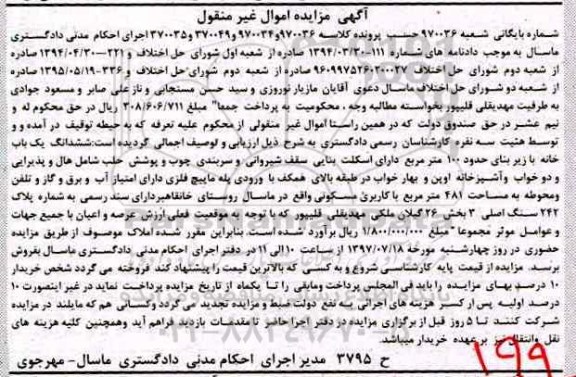 آگهی مزایده اموال غیر منقول
شماره بایگانی شعبه ۹۷۰۰۳۶ حسب پرونده کلاسه ۹۷۰۰۳۶و۹۷۰۰۳۴ و۳۷۰۰۴۹ و۳۷۰۰۳۵ اجرای احکام مدنی دادگستری
ماسال به موجب دادنامه های شماره ۱۱۱-۱۳۹۴/۰۳/۳۰ صادره از شعبه اول شورای حل اختلاف و ۲۲۱-۱۳۹۴/۰۴/۳۰ صادره
از شعبه دوم شورای حل اختلاف ۹۶۰۹۹۷۵۲۶۰۲۰۰۰۲۷ صادره از شعبه دوم شورای حل اختلاف و ۳۳۶-۱۳۹۵/۰۵/۱۹ صادره
از شعبه دو شورای حل اختلاف ماسال دعوی آقایان مازیار نوروزی و سید حسن مستجابی و نازعلی صابر و مسعود جوادی
به طرفیت مهدیقلی قلیپور بخواسته مطالبه وجه ، محکومیت به پرداخت جمعا" مبلغ ۳۰۸/۶۰۶/۷۱۱ ریال در حق محکوم له و
نیم عشر در حق صندوق دولت که در همین راستا اموال غیر منقولی از محکوم علیه تعرفه که به حیطه توقیف در آمده و و
توسط هئیت سه نفره کارشناسان رسمی دادگستری به شرح ذیل ارزیابی و توصیف اجمالی گردیده است:ششدانگ یک باب
خانه با زیر بنای حدود ۱۰۰ متر مربع دارای اسکلت بنایی سقف شیروانی و سربندی چوب و پوشش حلب شامل هال و پذیرایی
و دو خواب و آشپزخانه اوپن و بهار خواب در طبقه بالای همکف با ورودی پله مابیچ فلزی دارای امتیاز آب و برق و گاز و تلفن
ومحوطه به مساحت ۴۸۱ متر مربع با کاربری مسکونی واقع در ماسال روستای خانقاهبردارای سند رسمی به شماره پلاک
۲۴۲ سنگ اصلی ۳ بخش ۲۶ گیلان ملکی مهدیقلی قلیپور که با توجه به موقعیت فعلی ارزش عرصه و اعیان با جمیع جهات
و عوامل موثر مجموعا" مبلغ ۱/۸۰۰/۰۰۰/۰۰۰ ریال برآورد شده است. بنابراین مقرر شده املاک موصوف از طریق مزایده
حضوری در روز چهارشنبه مورخه ۱۳۹۷/۰۷/۱۸ از ساعت ۱۰ الی ۱۱ در دفتر اجرای احکام مدنی دادگستری ماسال بفروش
برسد. مزایده از قیمت پایه کارشناسی شروع و به کسی که بالاترین قیمت را پیشنهاد کند فروخته می گردد شخص خریدار
۱۰ درصد بهای مزایده را باید فی المجلس پرداخت ومابقی را تا یکماه از تاریخ مزایده پرداخت نماید در غیر اینصورت ۱۰
درصد اولیه پس از کسر هزینه های اجرائی به نفع دولت ضبط و مزایده تجدید می گردد وکسانی هم که مایلند در مزایده
شرکت کنند تا ۵ روز قبل از برگزاری مزایده در دفتر اجرا حاضر تا مقدمات بازدید فراهم آید وهمچنین کلیه هزینه های
نقل وانتقال نیز بر عهده خریدار میباشد.
ح ۳۷۹۵ مدیر اجرای احکام مدنی دادگستری ماسال- مهرجوی
۱۹۹
۰۲۱-۸۸۳۴۹۶۷۰